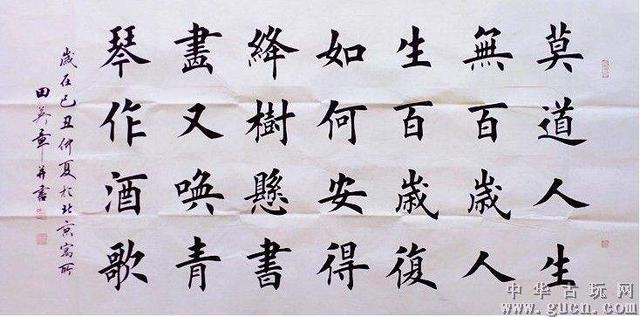 莫道人生
無百歲人
生百歲復
如何安得
絳樹懸書
畫又喚青
琴作酒歌
歲在己丑仲夏於北京寓所
田英章并書
中华古玩网
www.gucn.com